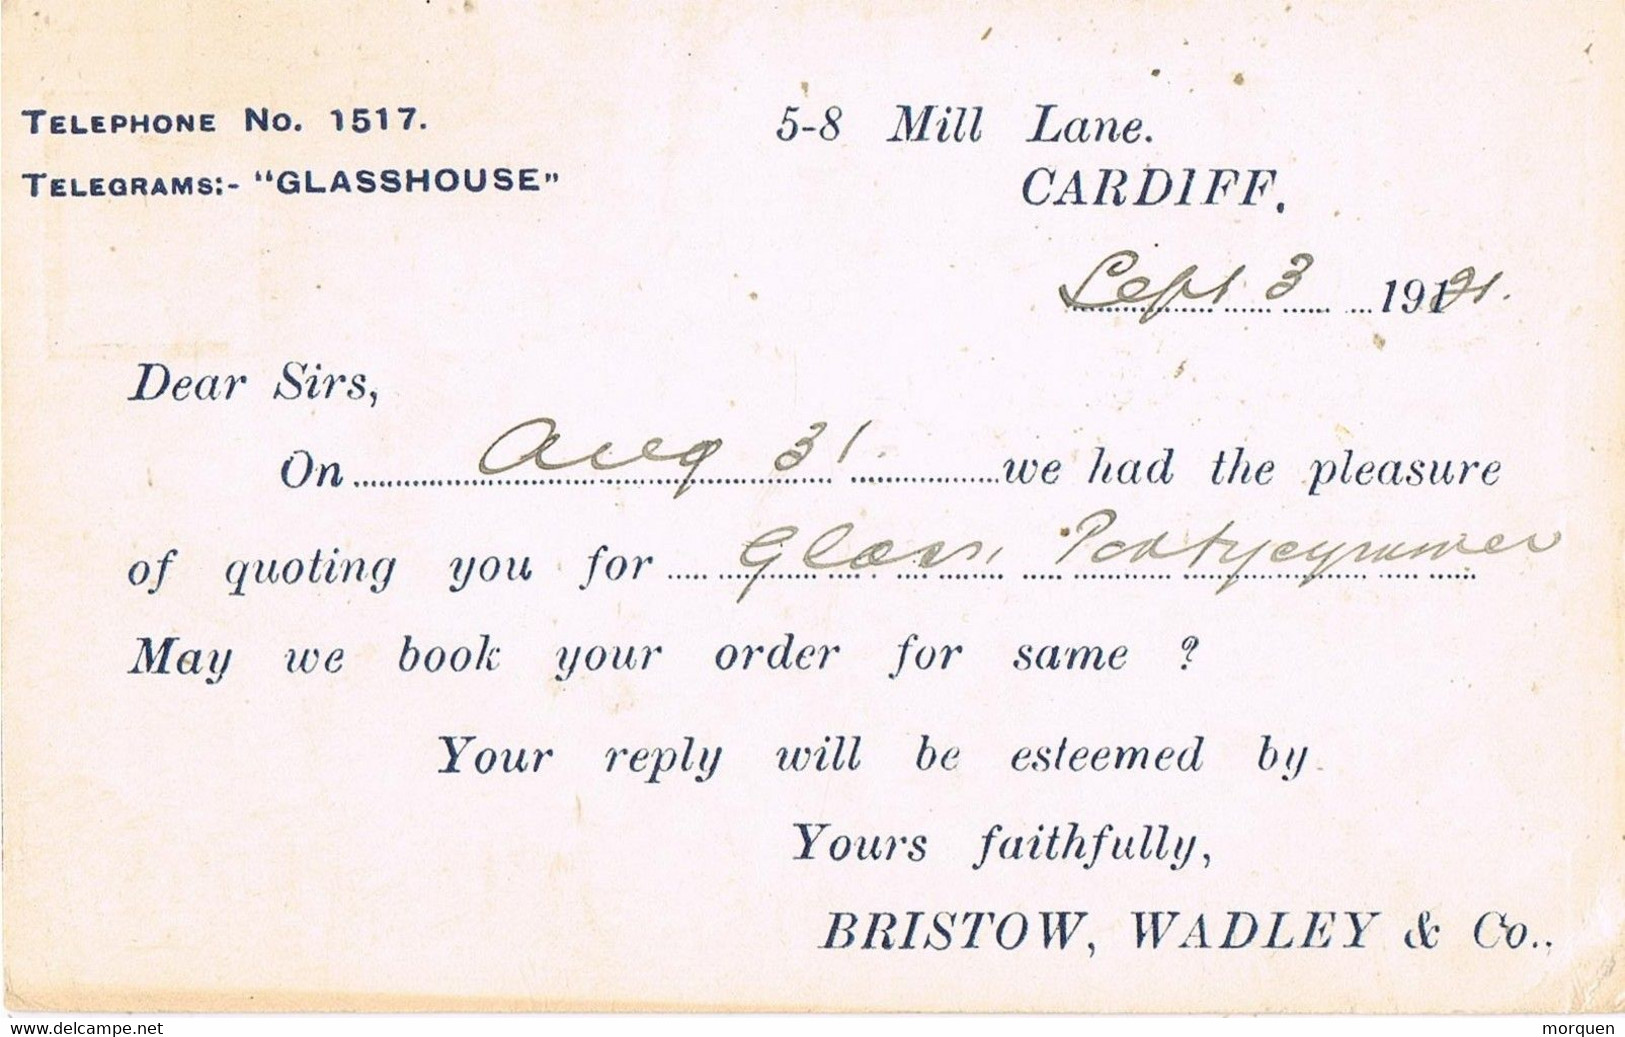 TELEPHONE No. 1517.
TELEGRAMS:- "GLASSHOUSE"
5-8 Mill Lane.
CARDIFF.
Sept 3 1921.
Dear Sirs,
On Aug 31 we had the pleasure
of quoting you for Glass, Pontycymmer
May we book your order for same ?
Your reply will be esteemed by
Yours faithfully,
BRISTOW, WADLEY & Co.,
www.delcampe.net
morquen